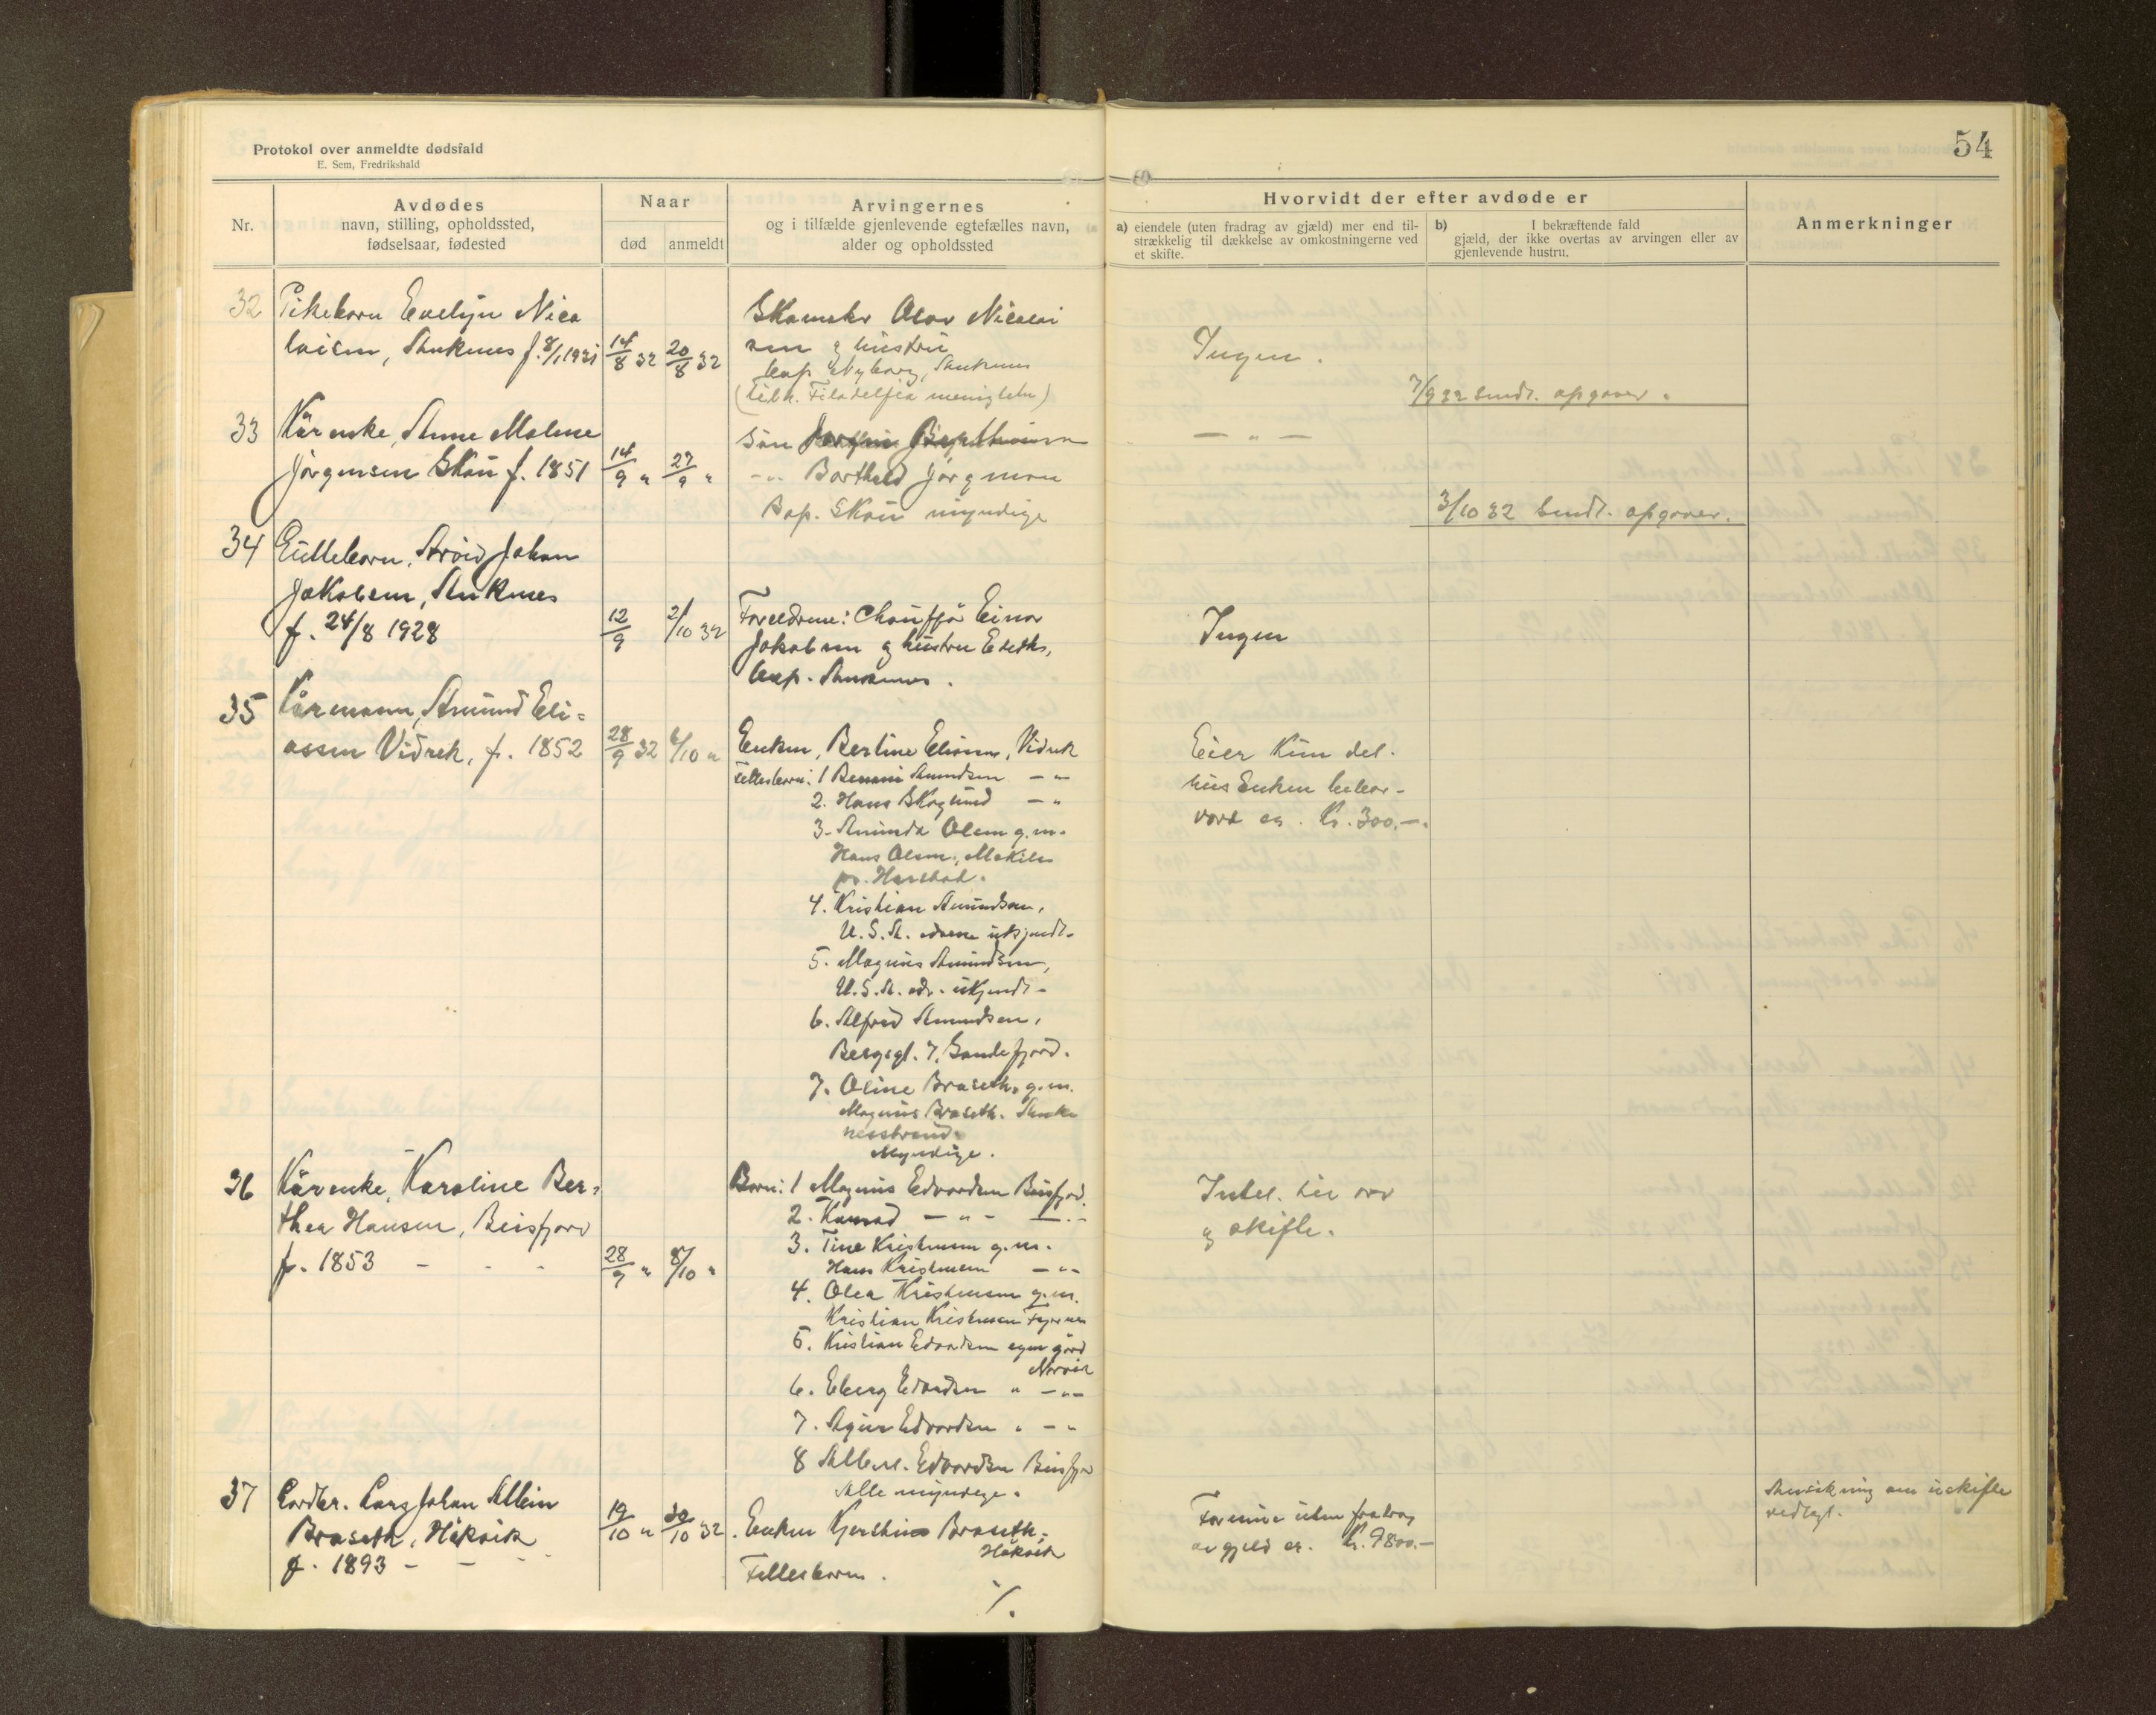 Protokol over anmeldte dødsfald
E. Sem, Fredrikshald
54
Nr.
Avdødes
navn, stilling, opholdssted,
fødselsaar, fødested
Naar
død
anmeldt
Arvingernes
og i tilfælde gjenlevende egtefælles navn,
alder og opholdssted
Hvorvidt der efter avdøde er
a) eiendele (uten fradrag av gjæld) mer end til-
strækkelig til dækkelse av omkostningerne ved
et skifte.
b) I bekræftende fald
gjæld, der ikke overtas av arvingen eller av
gjenlevende hustru.
Anmerkninger
32 Pikebarn Evelyn Nico
laisen, Ankenes f. 8/1 1931 14/8 32 20/8 32
Skomaker Olav Nicolai
sen og hustru
Nyborg, Ankenes
(Tilh. Filadelfia menigheten)
Ingen.
7/9 32 sendt. opgaver.
33 Kårenke, Anne Maline
Jørgensen Skåu f. 1851 14/9 " 27/9 "
Søn
-"- Barthold Jørgensen
Bop. Skåu myndige
— " —
3/10 32 Sendt. opgaver.
34 Guttebarn. Arvid Johan
Jakobsen, Ankenes
f. 24/8 1928 12/9 2/10 32
Foreldrene: Chauffør Einar
Jakobsen og hustru Edith,
bop. Ankenes.
Ingen
35 Kårmann, Amund Eli=
assen Vidrek, f. 1852 28/9 32 6/10 "
Enken, Berline Eliassen, Vidrek
Fellesbarn: 1 Amundsen — "
2. Hans Skoglund — "
3. Aminda Olsen g.m.
Hans Olsen,
pr. Harstad.
4. Kristian Amundsen,
U.S.A. adresse ukjendt.
5. Magnus Amundsen,
U.S.A. adr. ukjendt.
6. Alfred Amundsen,
Bergsgt. 7, Sandefjord.
7. Oline Braseth, g.m.
Magnus Braseth. Anke
nesstrand.
Myndige.
Eier kun det
hus Enken bebor
værd ca. Kr. 300.—.
36 Kårenke, Karoline Ber=
thea Hansen, Beisfjord
f. 1853 - - - 28/9 " 8/10 "
Barn: 1 Magnus Edvardsen Beisfjord.
2. Konrad — " — — " —
3. Tine Kristensen g.m.
Hans Kristensen — " —
4. Olea Kristensen g.m.
Kristian Kristensen
5. Kristian Edvardsen egen gård
Narvik
6. Eberg Edvardsen " — " —
7. Edvardsen " — "
8 Albert. Edvardsen Beisfjord
Alle myndige.
Intet. her arv
og skifte.
37 Gardbr. Lars Johan Albin
Braseth, Håkvik
f. 1893 - - - 19/10 " 30/10 32.
Enken Braseth,
Håkvik
Fellesbarn.
./.
Formue uten fradrag
av gjeld er. Kr. 9800.—
Ansøkning om uskifte
vedlagt.